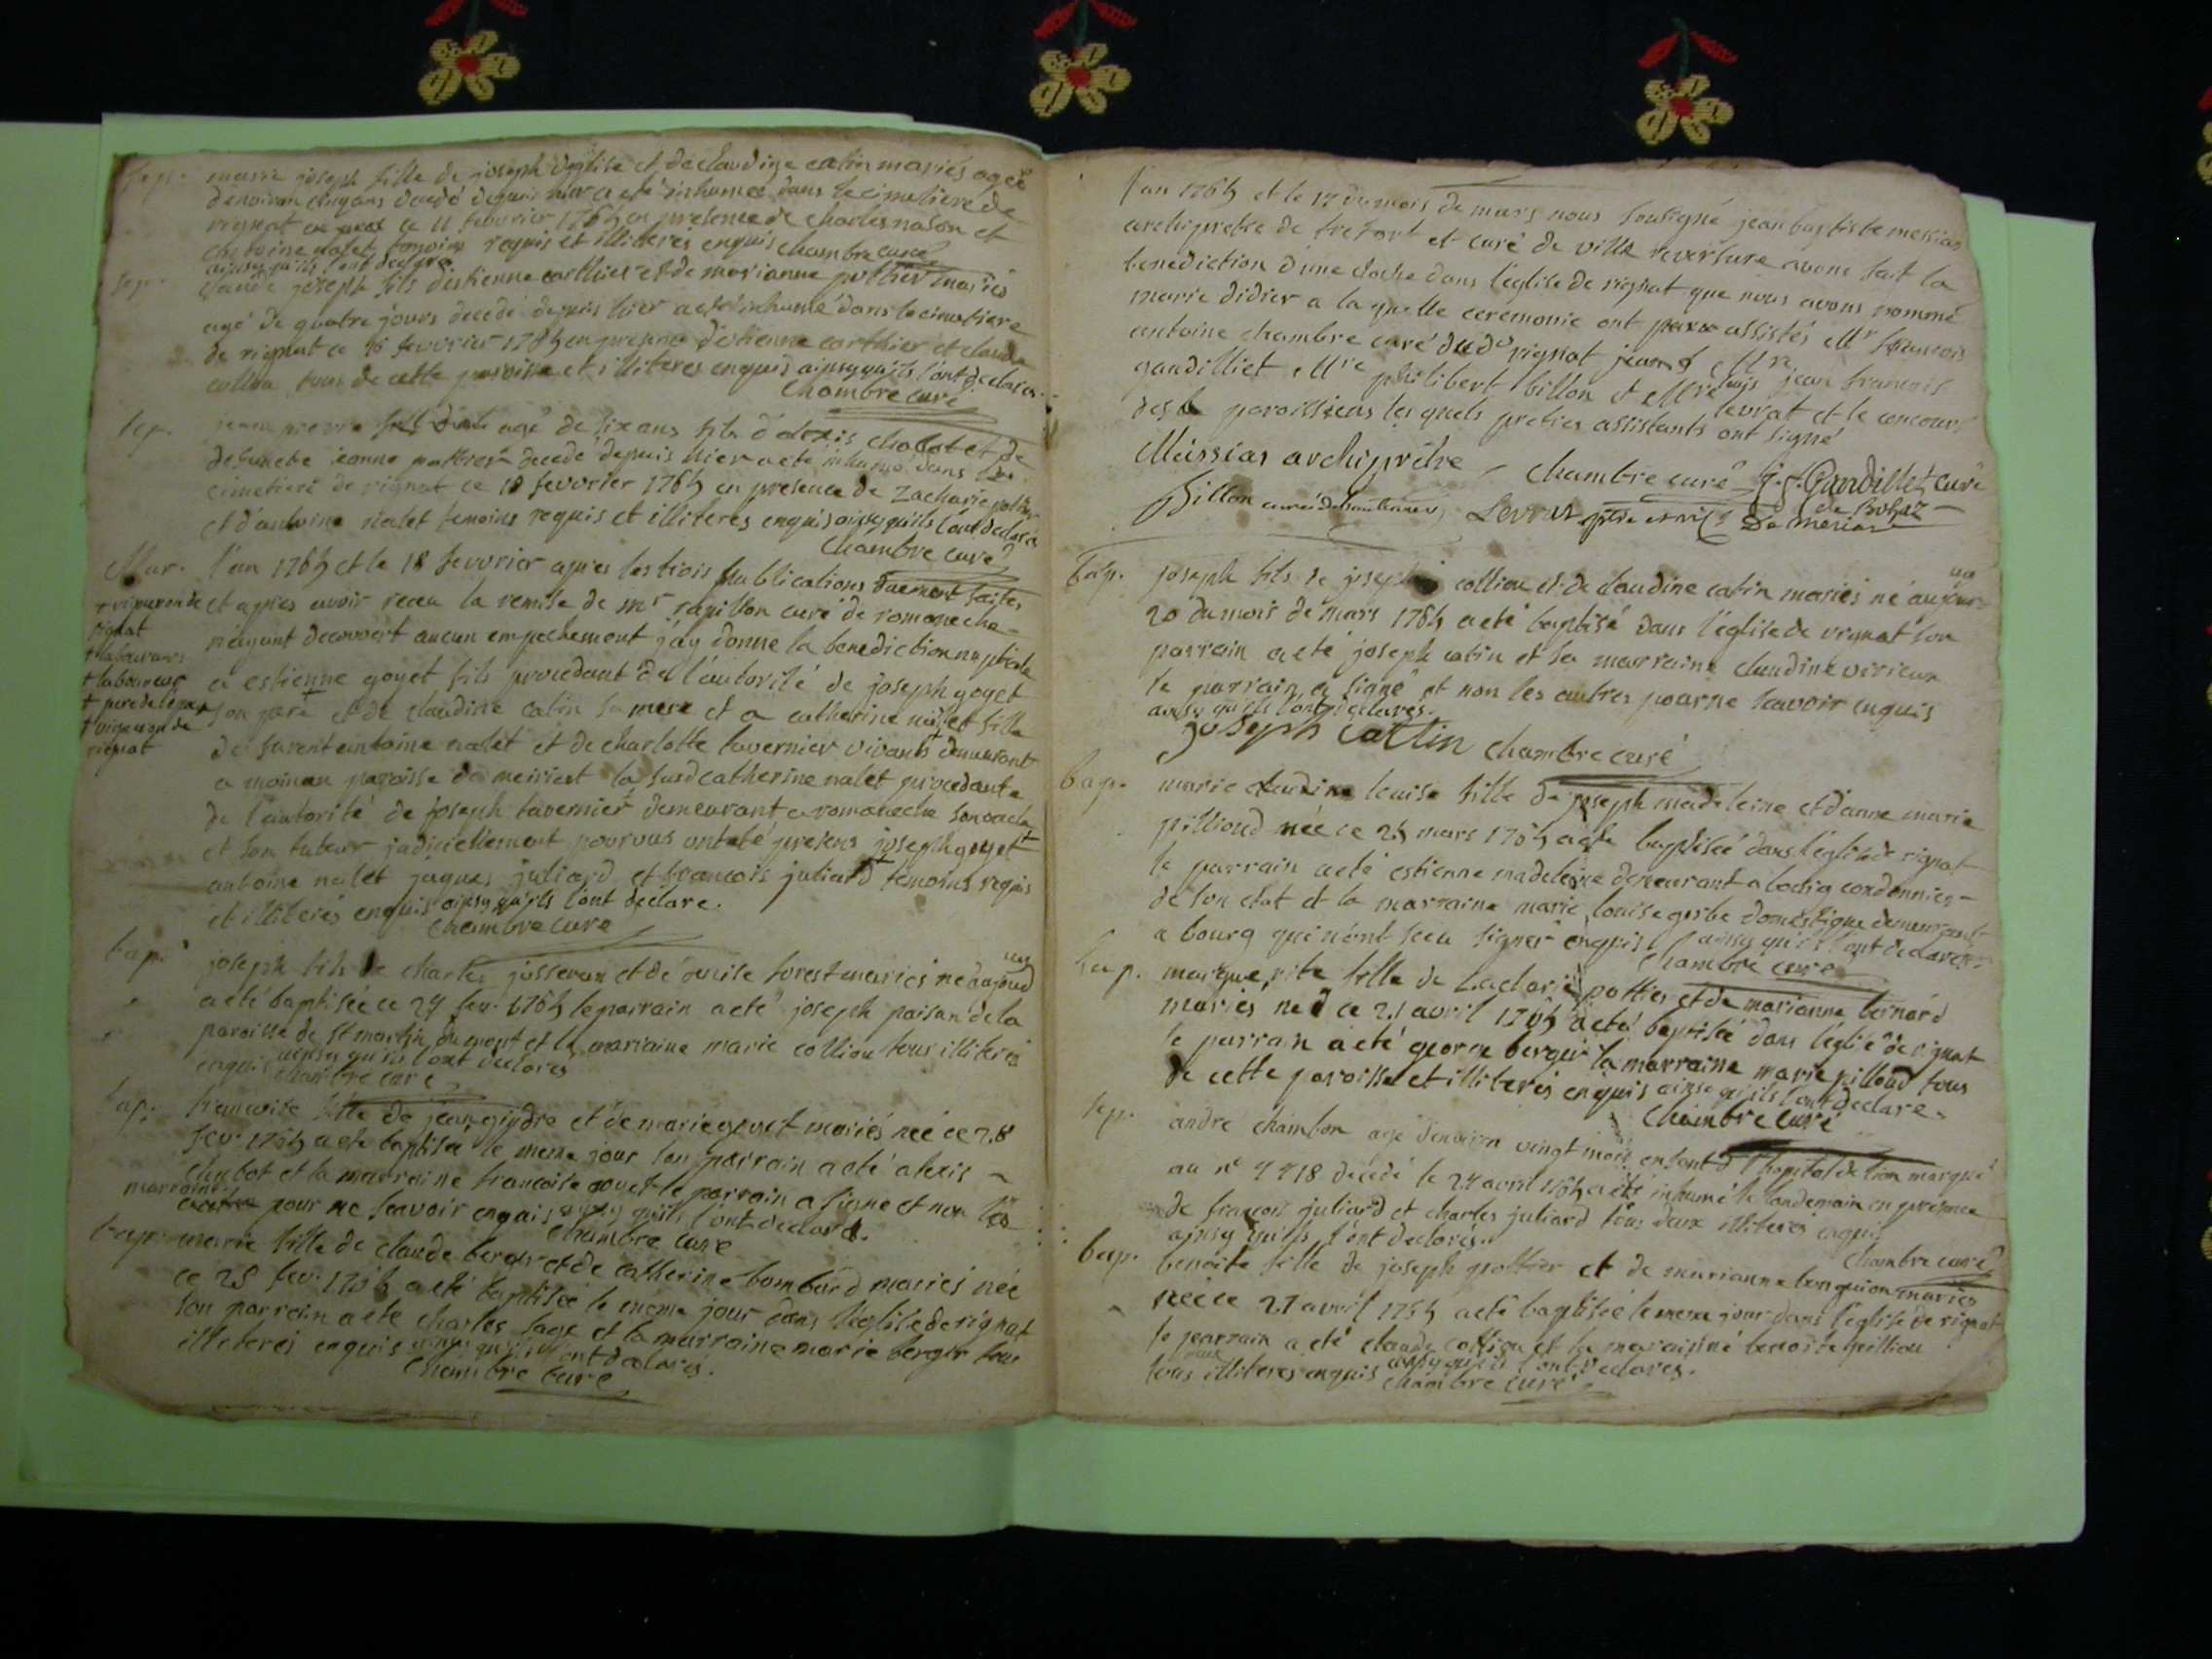 Sep. marie joseph fille de joseph et de claudine catin mariés agée
d'environ cinq ans decedé depuis hier a eté inhumée dans le cimetiere de
rignat ce 11 febvrier 1765 en presence de charles nason et
antoine nalet temoins requis et illiterés enquis chambre curé
ainsy qu'ils l'ont declaré
Sep. claude joseph fils d'estienne carthier et de marianne pothier mariés
agé de quatre jours decedé depuis hier a eté inhumé dans le cimetiere
de rignat ce 16 fevrier 1765 en presence d'etienne carthier et claude
colliou tous de cette paroisse et illiteres enquis ainsy qu'ils l'ont declaré.
Chambre curé
Sep. jean pierre agé de six ans fils d'alexis chabot et de
defuncte jeanne decedé depuis hier a eté inhumé dans le
cimetiere de rignat ce 18 fevvrier 1765 en presence de Zacharie pottier
et d'antoine nalet temoins requis et illiteres enquis ainsy qu'ils l'ont declaré
Chambre curé
Mar. l'an 1765 et le 18 fevvrier apres les trois publications duement faites
et apres avoir receu la remise de mr rapillon curé de romaneche
n'ayant decouvert aucun empechement j'ay donné la benediction nuptiale
a estienne goyet fils procedant de l'autorité de joseph goyet
son pere + et de claudine catin sa mere et a catherine nalet fille
de furent antoine nalet et de charlotte tavernier vivants demeurant
a moinan paroisse de meiriat la susd catherine nalet procedante
de l'autorité de joseph tavernier demeurant a romaneche son oncle
et son tuteur judiciellement pourvus ont eté presens joseph goyet +
antoine nalet jaques juliard et francois juliard + temoins requis
et illiterés enquis ainsy qu'ils l'ont declaré.
chambre curé
+ vigneron de
rignat
+ laboureurs
+ laboureur
+ pere de l'epoux
+ vigneron de
rignat
bap. joseph fils de charles josseran et de louise forest mariés né aujourd
a eté baptisée ce 27 fev. 1765 le parrain a eté joseph paisan de la
paroisse de st martin du mont et la marraine marie colliou tous illiterés
enquis ainsy qu'ils l'ont declarés
chambre curé
bap. francoise fille de jean gindre et de marie goyet mariés née ce 28
fev. 1765 a eté baptisée le meme jour son parrain a eté alexis
chabot et la marraine francoise goyet le parrain a signé et non la
marraine pour ne scavoir enquis ainsy qu'ils l'ont declaré.
Chambre curé
bap. marie fille de claude berger et de catherine bombard mariés née
ce 28 fev. 1765 a eté baptisée le meme jour dans l'eglise de rignat
son parrain a eté charles sage et la marraine marie berger tous
illiterés enquis ainsy qu'ils l'ont declarés.
Chambre curé
l'an 1765 et le 17 du mois de mars nous sousigné jean baptiste messias
archipretre de trefort et curé de ville reversure avons fait la
benediction d'une cloche dans l'eglise de rignat que nous avons nommé
marie didier a la quelle ceremonie ont assistés Mr francois
antoine chambre curé dud rignat Mre jean francois
gaudilliet Mre philibert billon et Mre levrat et le concours
des paroissiens les quels pretres assistants ont signé
Messias archiprêtre Chambre curé j. f. Gaudillet curé
de Bohaz
Billon curé d'hautecour Levrat ptre
bap. joseph fils de joseph colliou et de claudine catin mariés né aujour
20 du mois de mars 1765 a eté baptisé dans l'eglise de rignat son
parrain a eté joseph catin et sa marraine claudine verieux
le parrain a signé et non les autres pour ne scavoir enquis
ainsy qu'ils l'ont declarés.
joseph cattin chambre curé
bap. marie claudine louise fille de joseph madeleine et d'anne marie
pilliond née ce 25 mars 1765 a eté baptisée dans l'eglise de rignat
le parrain a eté estienne madeleine demeurant a cordonnier
de son etat et la marraine marie louise gerbe domestique demeurante
a bourg qui n'ont sceu signer enquis ainsy qu'ils l'ont declarés.
Chambre curé
bap. marguerite fille de Zacharie pottier et de marianne bernard
mariés née ce 21 avril 1765 a eté baptisée dans l'eglise de rignat
le parrain a eté george berger la marraine marie pilloud tous
de cette paroisse et illiterés enquis ainsy qu'ils l'ont declaré.
Chambre curé
Sep. andre chambon agé d'environ vingt mois enfant d l'hopital de lion marqué
au no 4418 decedé le 24 avril 1765 a eté inhumé le landemain en presence
de francois juliard et charles juliard tous deux illiterés enquis
ainsy qu'ils l'ont declarés.
Chambre curé
bap. benoite fille de joseph pottier et de marianne mariés
née ce 27 avril 1765 a eté baptisée le meme jour dans l'eglise de rignat
le parrain a eté claude colliou et la marainne benoite pilliou
tous deux illiteres enquis ainsy qu'ils l'ont declarés.
chambre curé